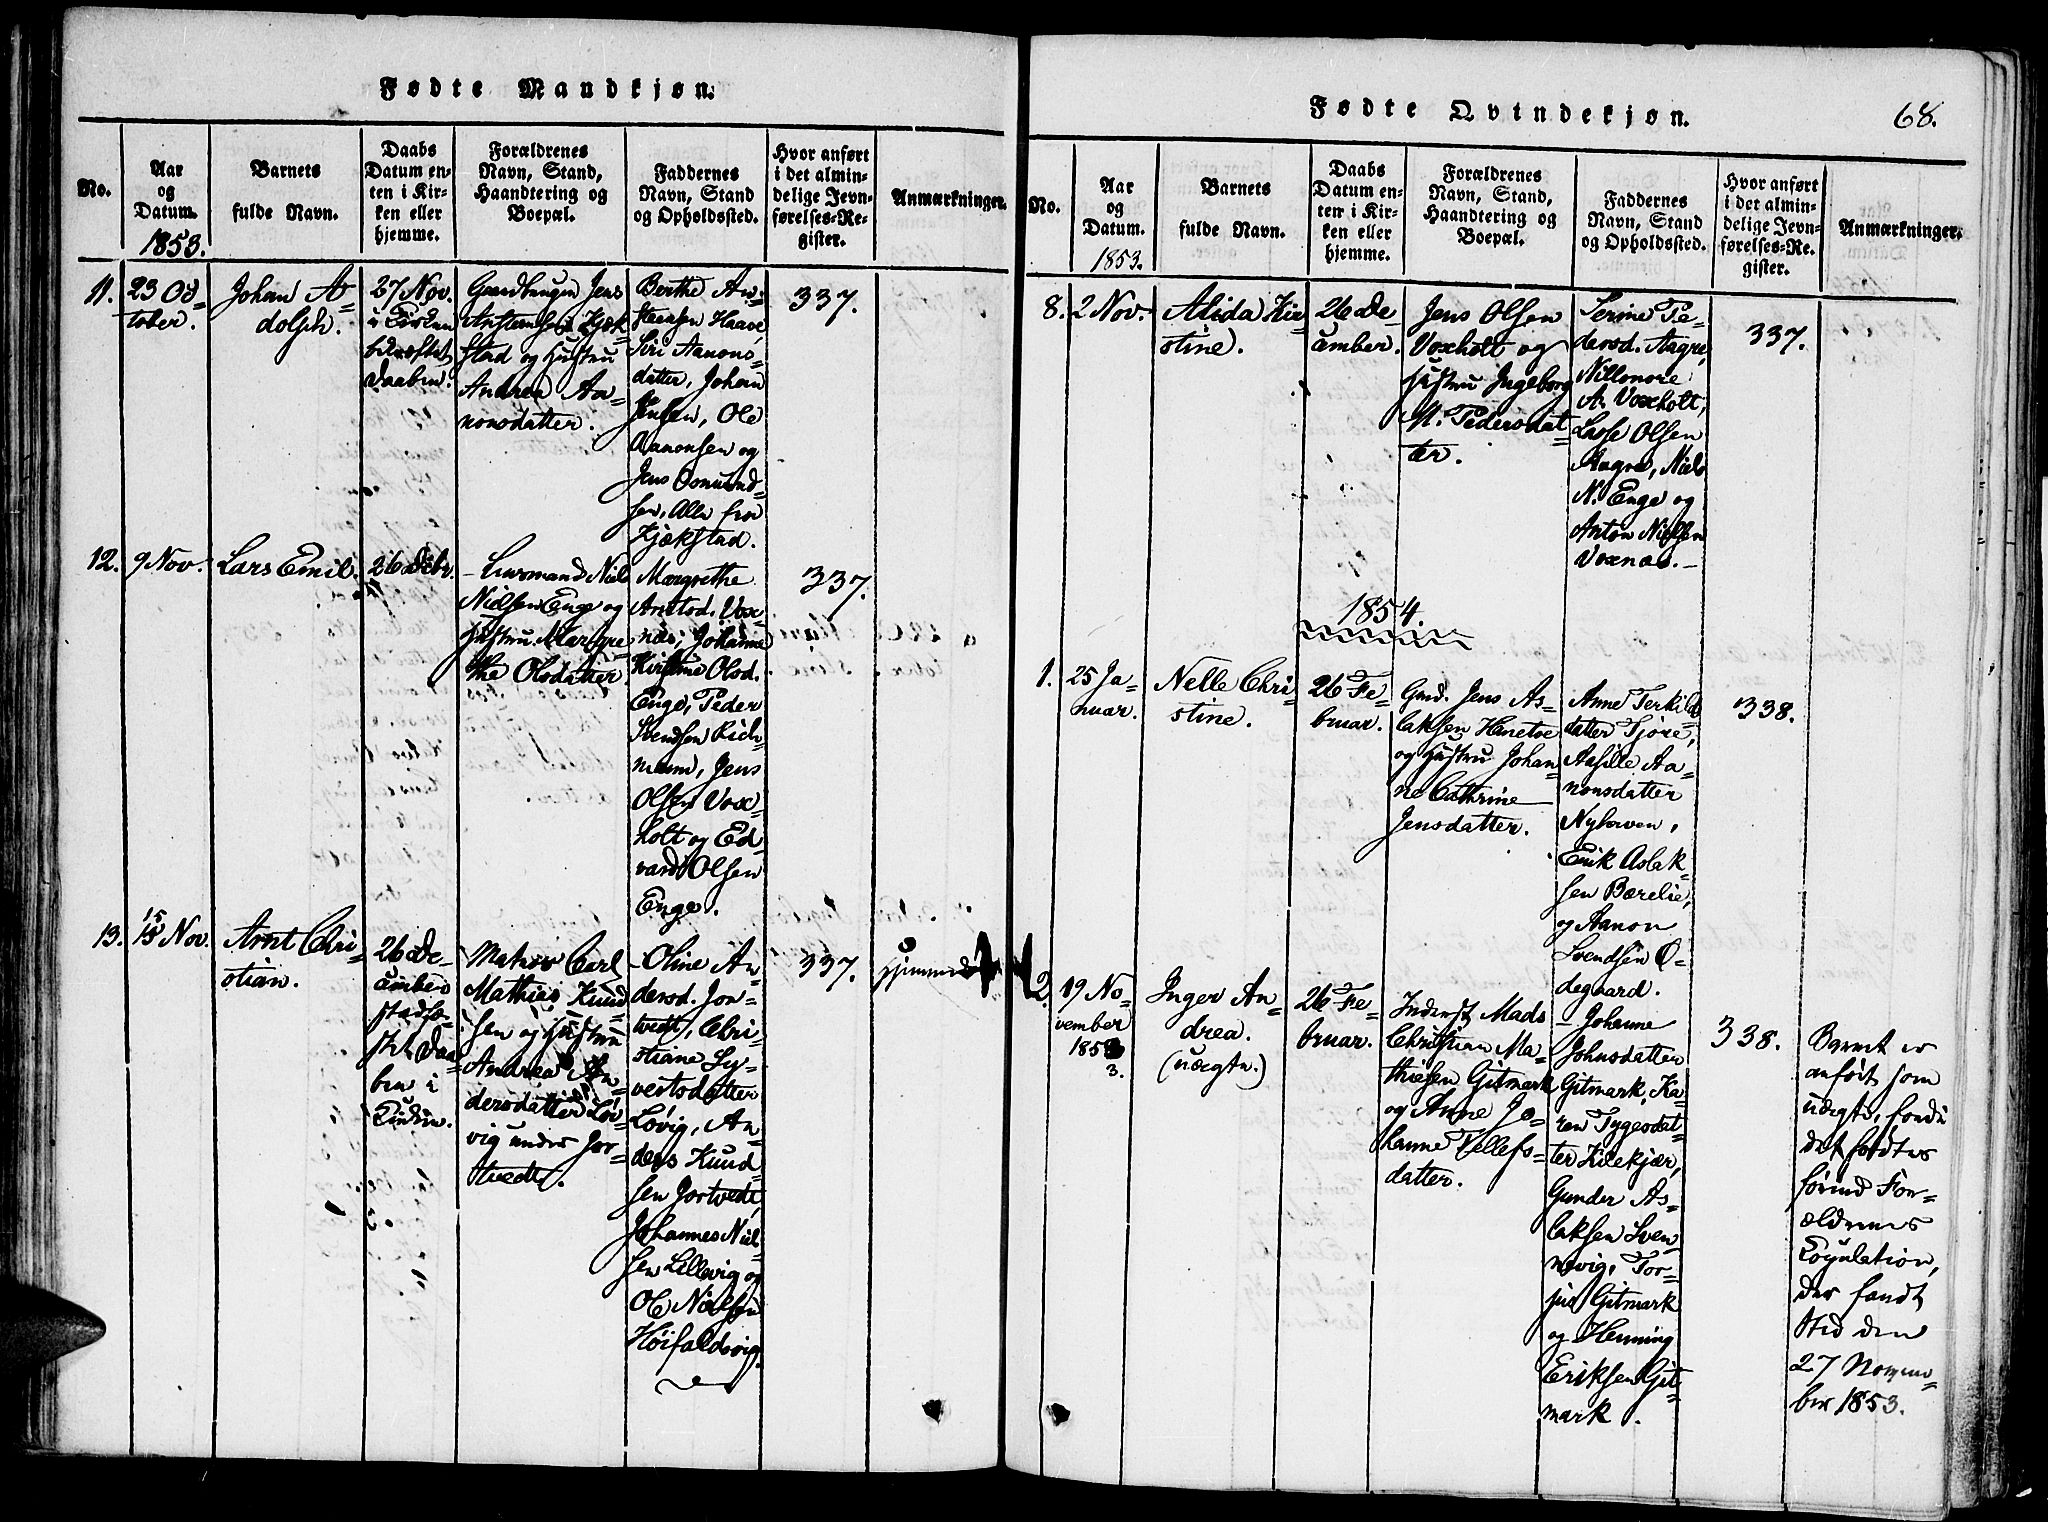 Fødte Mandkjøn.
No.
Aar
og
Datum.
1853.
Barnets
fulde Navn.
Daabs
Datum en-
ten i Kir-
ken eller
hjemme.
Forældrenes
Navn, Stand,
Haandtering og
Boepæl.
Faddernes
Navn, Stand
og Opholdssted.
Hvor anført
i det almin-
delige Jevn-
førelses-Re-
gister.
Anmærkninger.
11.
23 Oc-
tober.
Johan A-
dolph.
27 Nov.
i Kirken
bekræftet
Daaben.
Gaardbrugen Jens
Anstensen Kjek-
stad og Hustru
Andrea Aa-
nonsdatter.
Berthe An-
stensen Haave,
Siri Aanons-
datter, Johan
Jensen, Ole
Aanonsen og
Jens Osmund-
sen, Alle fra
Kjækstad.
337.
12.
9 Nov.
Lars Emil.
26 Decbr.
Huusmand Niels
Nielsen Enge og
Hustru Margre-
the Olsdatter.
Margrethe
Arntsd. Vox-
næs, Johanne
Kirstine Olsd.
Enge, Peder
Svendsen Rich-
mann, Jens
Olsen Vox-
holt og Ed-
vard Olsen
Enge.
337.
13.
15 Nov.
Arnt Chri-
stian.
26 De-
cember
stadfæ-
stet Daa-
ben i
Kirken.
Matros Carl
Mathias Knud-
sen og Hustru
Andrea An-
dersdatter Løv-
vig under Jor-
tvedt.
Oline An-
dersd. Jor-
tvedt, Chri-
stiane Sy-
vertsdatter
Løvig, An-
ders Knud-
sen Jortvedt,
Johannes Niel-
sen Lillevig og
Ole Nielsen
Høifaldsvig.
337.
Fødte Qvindekjøn.
68.
No.
Aar
og
Datum.
1853.
Barnets
fulde Navn.
Daabs
Datum en-
ten i Kir-
ken eller
hjemme.
Forældrenes
Navn, Stand,
Haandtering og
Boepæl.
Faddernes
Navn, Stand
og Opholdssted.
Hvor anført
i det almin-
delige Jevn-
førelses-Re-
gister.
Anmærkninger.
8.
2 Nov.
Alida Kir-
stine.
26 De-
cember.
Jens Olsen
Voxholt og
Hustru Ingeborg
M. Pedersdat-
ter.
Serine Pe-
dersd. Aagre,
Nillonore
A. Voxholt,
Lasse Olsen
Aagre, Niels
N. Enge og
Anton Nielsen
Voxnæs.
337.
1854.
1.
25 Ja-
nuar.
Nelle Chri-
stine.
26 Fe-
bruar.
Gmd. Jens As-
laksen Hanetoe
og Hustru Johan-
ne Cathrine
Jensdatter.
Anne Terkilds-
datter Tjøre,
Aasille Aa-
nonsdatter
Nyhaven,
Erik Aslak-
sen Bærelie,
og Aanon
Svendsen Ø-
degaard.
338.
2.
19 No-
vember
1853
3.
Inger An-
drea.
(uægte.)
26 Fe-
bruar.
Inderst Mads
Christian Ma-
thisen Gitmark
og Anne Jo-
hanne Tellefs-
datter.
Johanne
Johnsdatter
Gitmark, Ka-
ren Tygesdat-
ter Kilekjær,
Gunder As-
laksen Sven-
nevig, Tor-
jus Gitmark
og Henning
Eriksen Git-
mark.
338.
Barnet er
anført som
uægte, fordi
det fødtes
førend For-
ældrenes
Copulation,
der fandt
Sted den
27 Novem-
ber 1853.